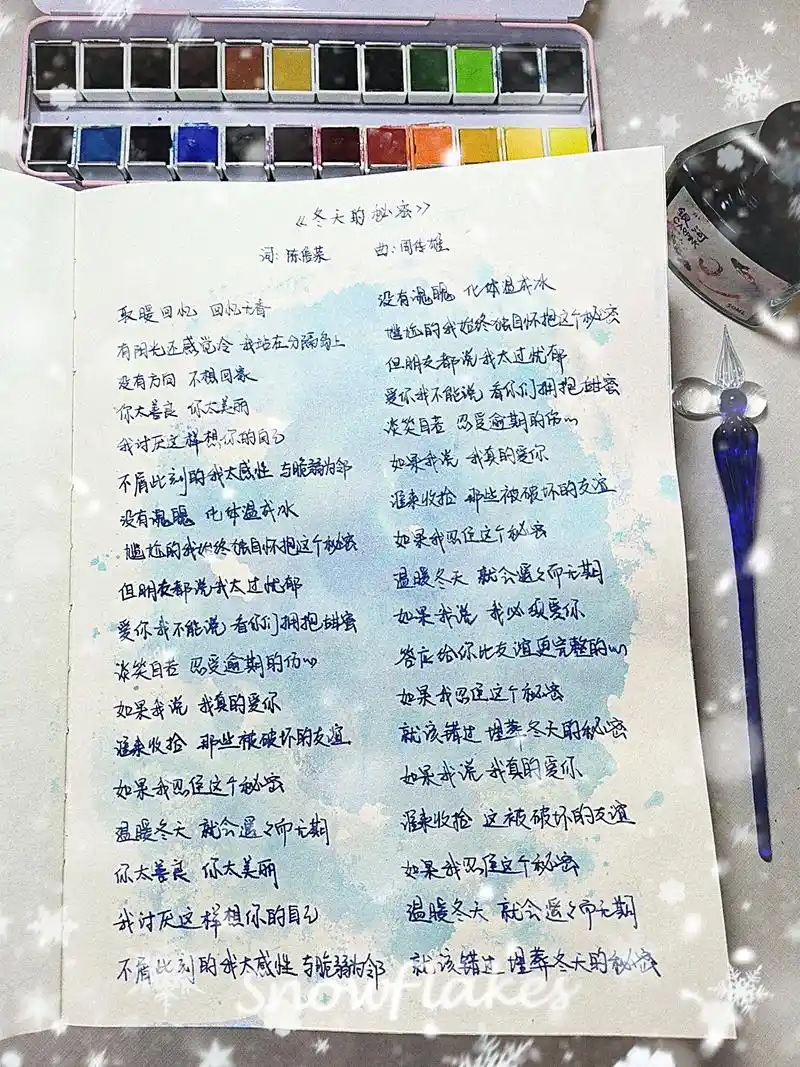 《冬天的秘密》
词:陈信荣 曲:周传雄
取暖回忆 回忆无音
有阳光还感觉冷 我站在分隔岛上
没有方向 不想回家
你太善良 你太美丽
我讨厌这样想你的自己
不屑此刻的我太感性 与脆弱为邻
没有魂魄 化体温成冰
尴尬的我始终独自怀抱这个秘密
但朋友都说我太过忧郁
爱你我不能说 看你们拥抱甜蜜
淡笑自若 忍受逾期的伤心
如果我说 我真的爱你
谁来收拾 那些被破坏的友谊
如果我忍住这个秘密
温暖冬天 就会遥遥而无期
你太善良 你太美丽
我讨厌这样想你的自己
不屑此刻的我太感性 与脆弱为邻
没有魂魄 化体温成冰
尴尬的我始终独自怀抱这个秘密
但朋友都说我太过忧郁
爱你我不能说 看你们拥抱甜蜜
淡笑自若 忍受逾期的伤心
如果我说 我真的爱你
谁来收拾 那些被破坏的友谊
如果我忍住这个秘密
温暖冬天 就会遥遥而无期
如果我说 我必须爱你
答应给你比友谊更完整的心
如果我忍住这个秘密
就该错过 埋葬冬天的秘密
如果我说 我真的爱你
谁来收拾 这被破坏的友谊
如果我忍住这个秘密
温暖冬天 就会遥遥而无期
就该错过 埋葬冬天的秘密
银河
50ML
Snowflakes